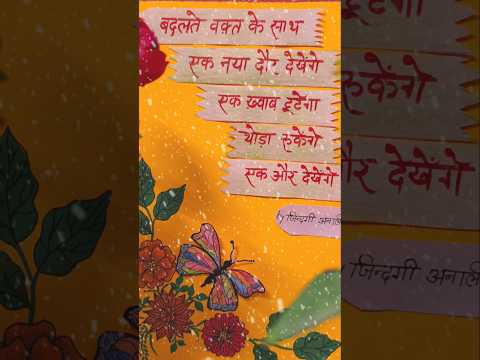 बदलते वक़्त के साथ
एक नया दौर देखेंगे
एक ख़्वाब टूटेगा
थोड़ा रुकेंगे
एक और देखेंगे
by जिन्दगी अनाली